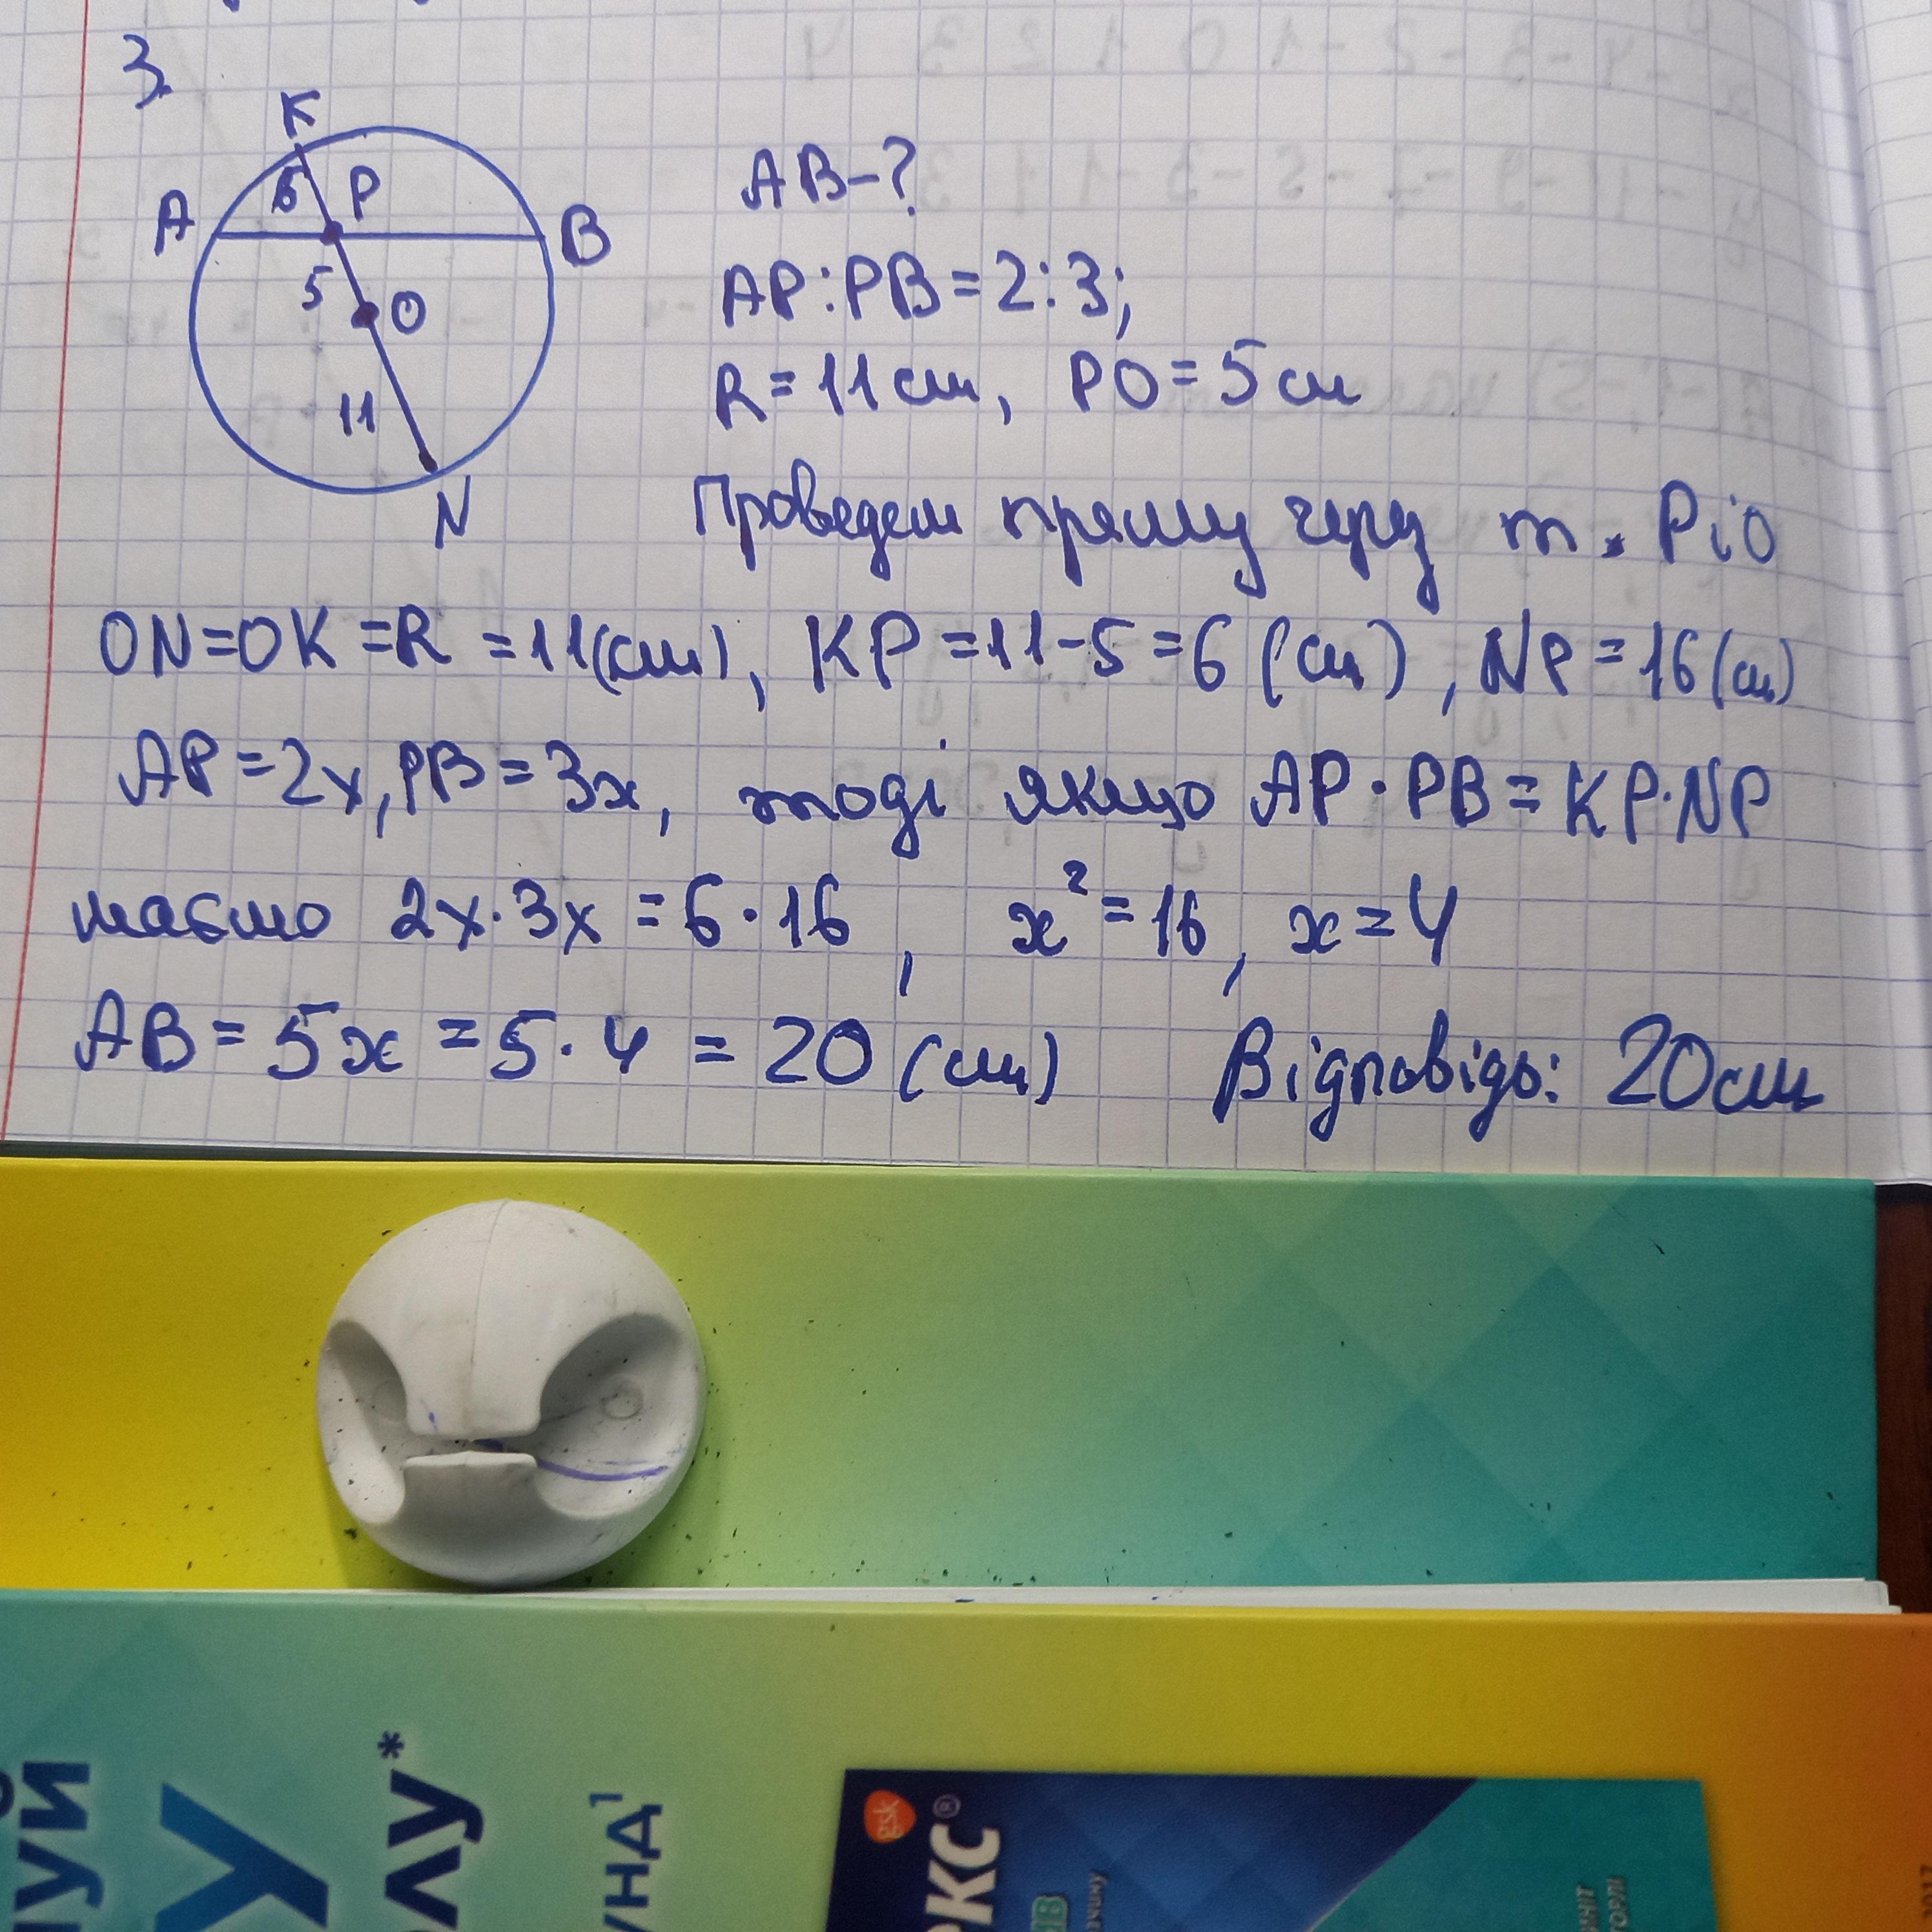 3.
K
6 P
A B
5 O
11
N
AB-?
AP:PB=2:3;
R=11см, PO=5см
Проведем пряму через т. P і O
ON=OK=R=11(см), KP=11-5=6(см), NP=16(см)
AP=2x, PB=3x, тоді якщо AP·PB=KP·NP
маємо 2x·3x=6·16, x²=16, x=4
AB=5x=5·4=20(см) Відповідь: 20см
ЛУ*
УНД¹
gsk
РКС®